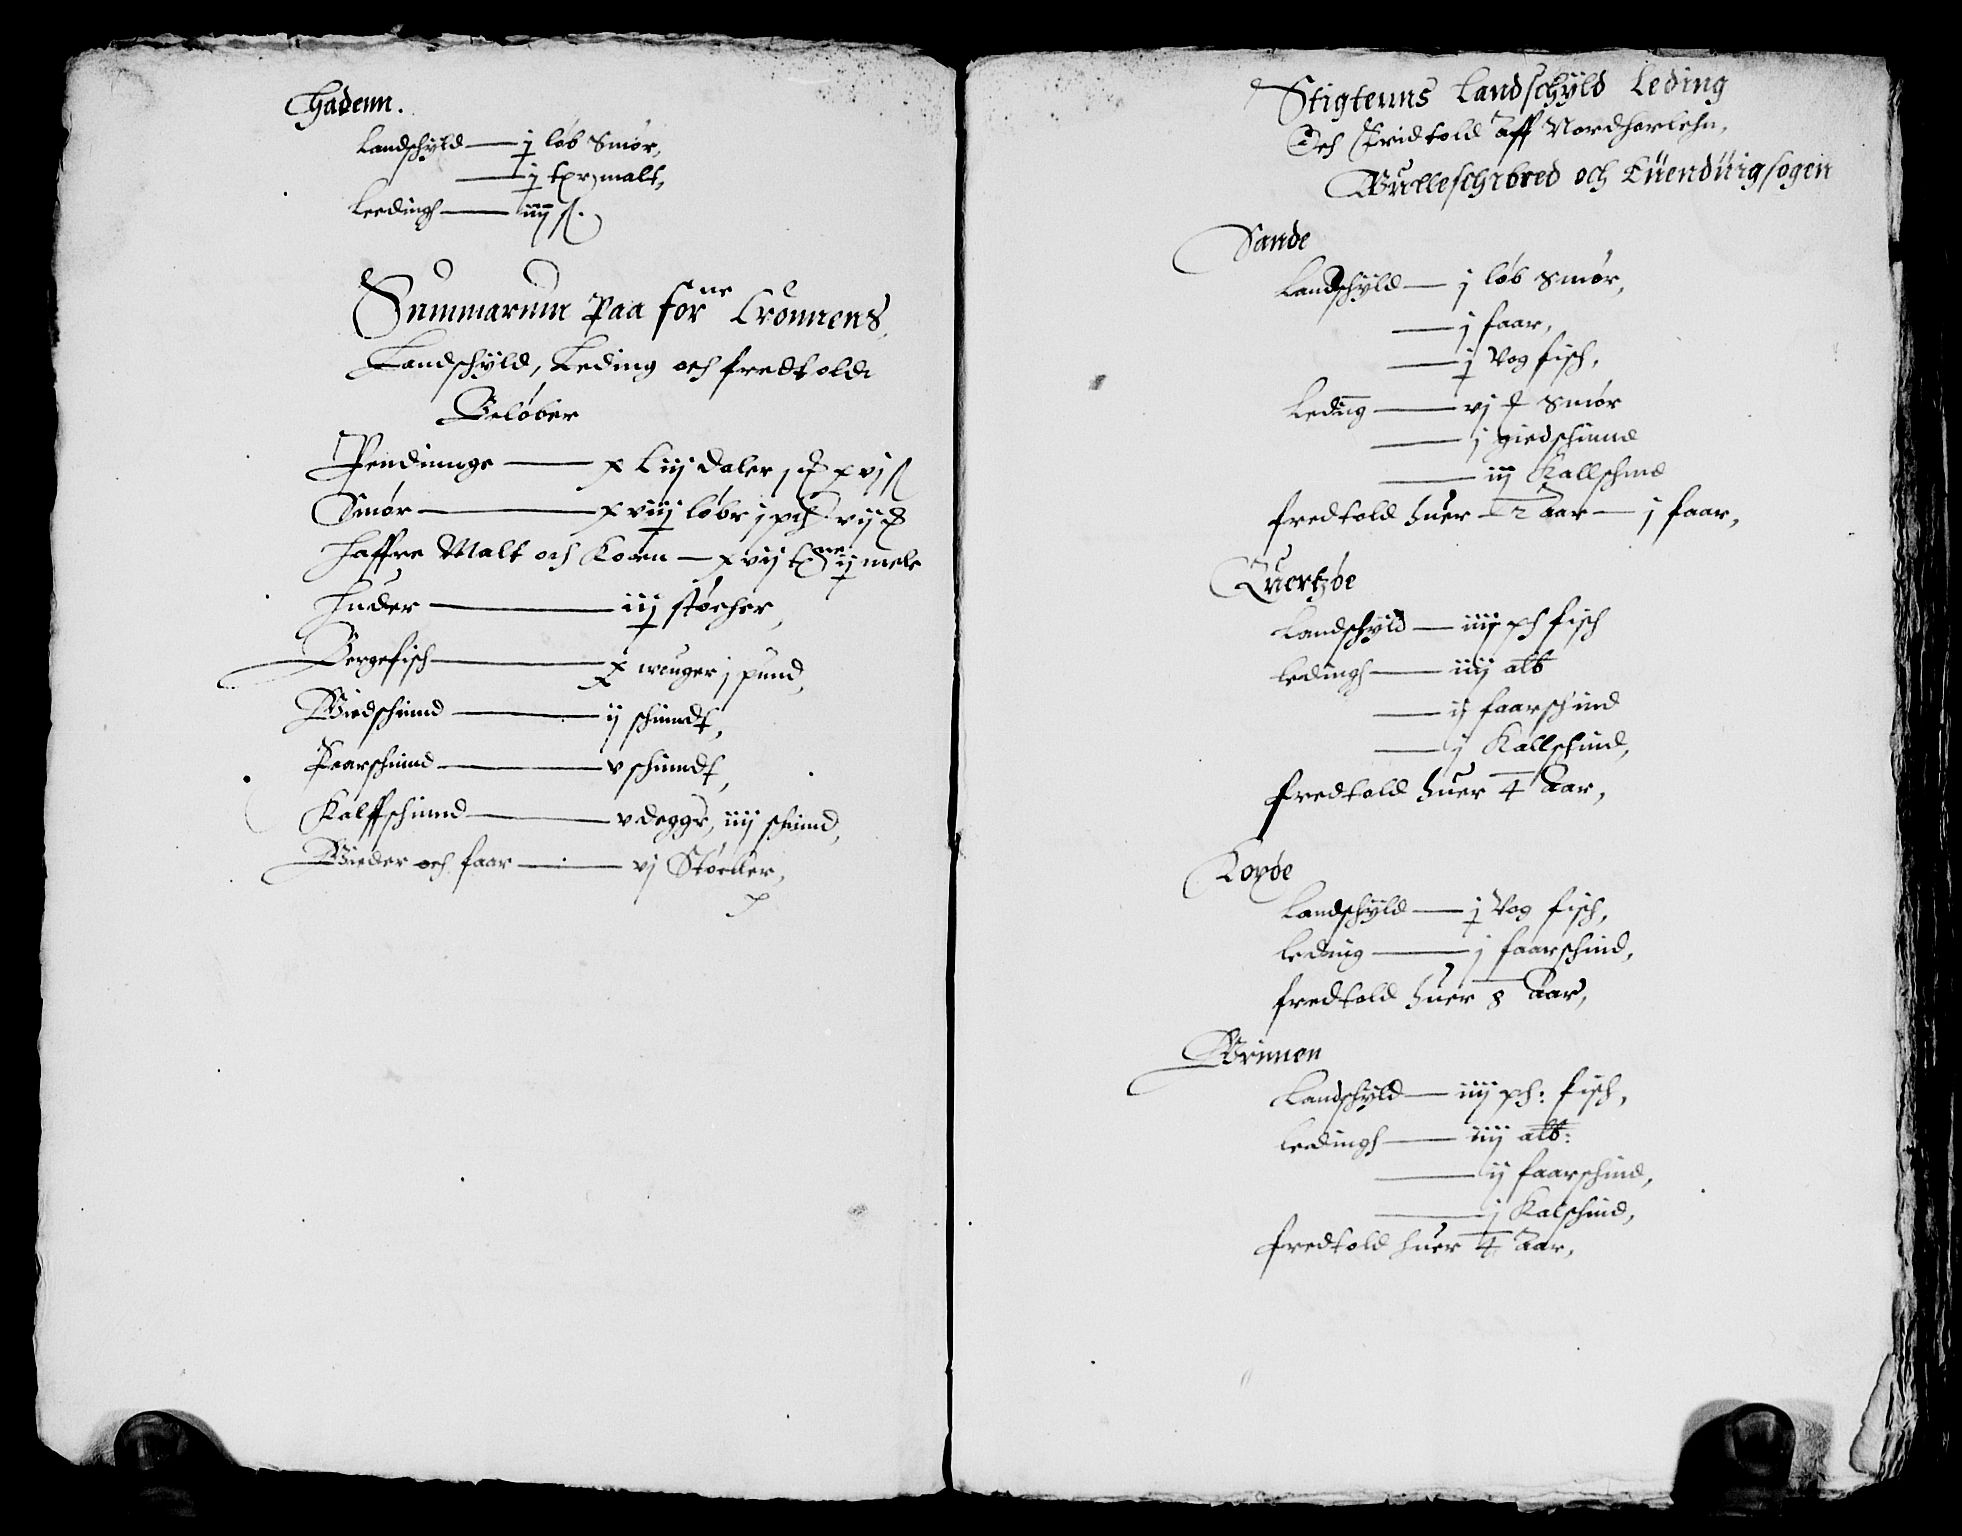 Hadenn.
Landschyld — j løb Smør,
— j tpn malt,
Leedingh — iiij ß.
Summarum Paa forne Cronnens
Landschyld, Leding och fredtold
Beløber
Pendinnge — x Liij daler j xvj ß
Smør — xviij løbr j pd vij
Haffre Malt och Korn — xvij ij mele
Huder — iij støcher,
Bergefisch — x wouger j pund,
Giedschind — ij schindt,
Faarschind — v schindt,
Kalffschind — v deggr, iiij schind,
Gieder och faar — vj Støcker,
Stigtenns Landschyld Leding
Och fredtold Aff Nordhorlehn,
Gulleschibred och Euenduigsogen
Sande
Landschyld — j løb Smør,
— j faar,
— j Vog fisch,
Leding — vj Smør
— j giedschind
— iij Kallschind
fredtold huer 12 Aar — j faar,
Quertzøe
Landschyld — iiij ph fisch
Ledingh — iiij alb
— ij faarschind
— j Kallschind,
fredtold huer 4 Aar,
Kopøe
Landschyld — j Vog fisch,
Leding — j faarschind,
fredtold huer 8 Aar,
Brinnen
Landschyld — iiij ph: fisch,
Ledingh — iiij alb:
— ij faarschind,
— j Kalschind,
fredtold huer 4 Aar,